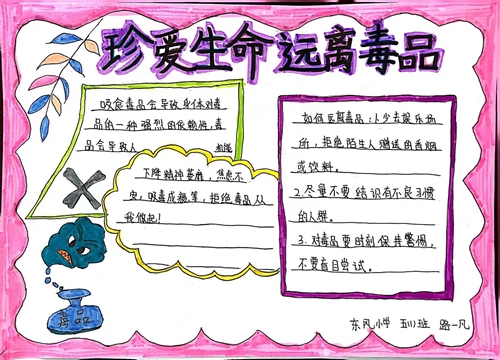 珍爱生命远离毒品
吸食毒品会导致身体对毒
品的一种强烈的依赖性,毒
品会导致人
下降精神萎靡,焦虑不
安,吸毒成瘾等,拒绝毒品从
我做起!
如何远离毒品:1.少去娱乐场
所,拒绝陌生人赠送的香烟
或饮料。
2.尽量不要结识有不良习惯
的人群。
3.对毒品要时刻保持警惕,
不要盲目尝试。
毒品
东风小学 五(1)班 路一凡